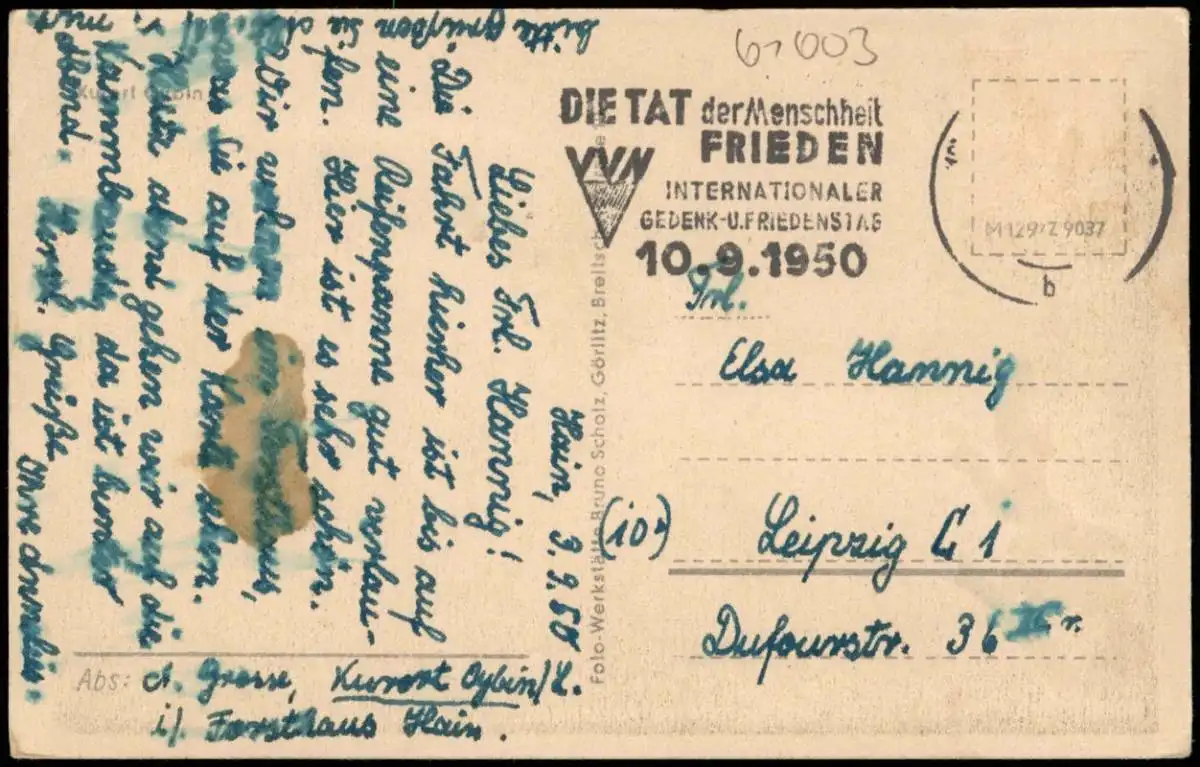 61003
DIE TAT der Menschheit
FRIEDEN
VVN
INTERNATIONALER
GEDENK-U.FRIEDENSTAG
10.9.1950
M 129/Z 9037
b
Kurort Oybin
Hain, 3.9.50
Liebes Frl. Hannig!
Die Fahrt hierher ist bis auf
eine Reifenpanne gut verlau-
fen. Hier ist es sehr schön.
Wir wohnen im Forsthaus,
was Sie auf der Karte sehen.
Heute abend gehen wir auf die
Kammbaude, da ist bunter
Abend. Herzl. Grüße
Ihre Annelies.
bitte Grüßen Sie
Foto-Werkstätte Bruno Scholz, Görlitz,
Frl.
Elsa Hannig
(10b) Leipzig C 1
Dufourstr. 36 r.
Abs: A. Grosse, Kurort Oybin/Z.
i/ Forsthaus Hain.